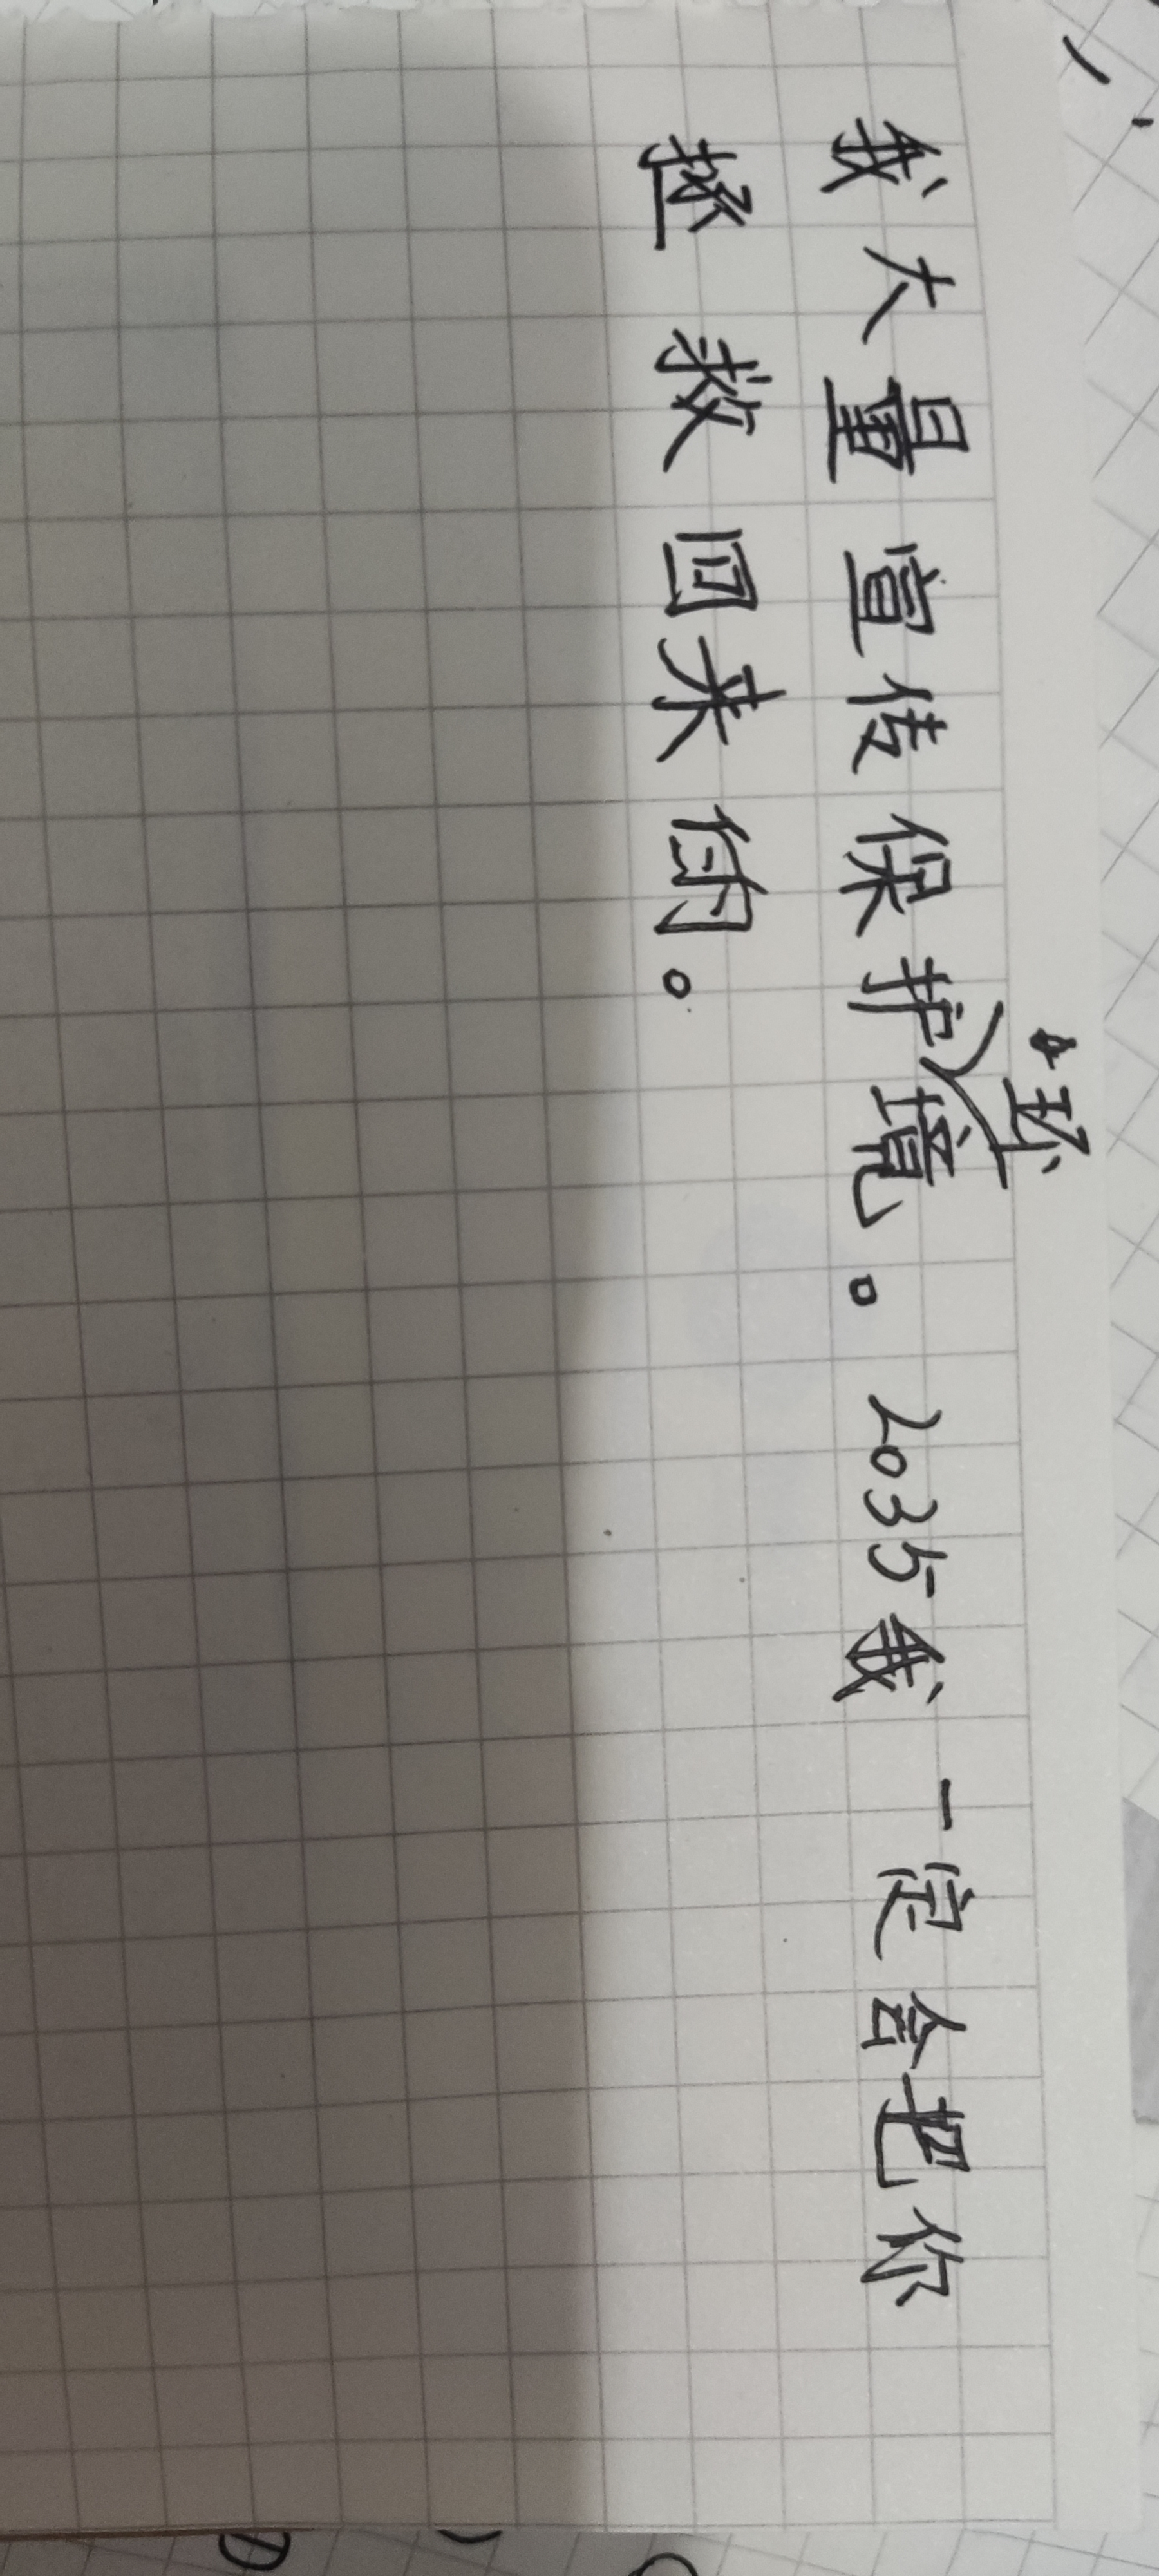 我大量宣传保护环境。2035我一定会把你
拯救回来的。